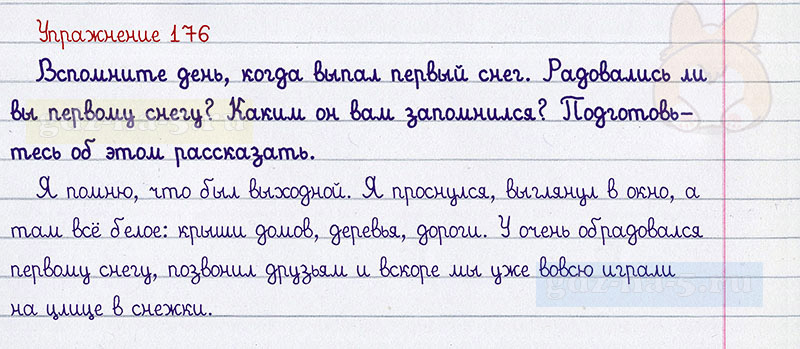 Упражнение 176
Вспомните день, когда выпал первый снег. Радовались ли
вы первому снегу? Каким он вам запомнился? Подготовь-
тесь об этом рассказать.
Я помню, что был выходной. Я проснулся, выглянул в окно, а
там всё белое: крыши домов, деревья, дороги. У очень обрадовался
первому снегу, позвонил друзьям и вскоре мы уже вовсю играли
на улице в снежки.